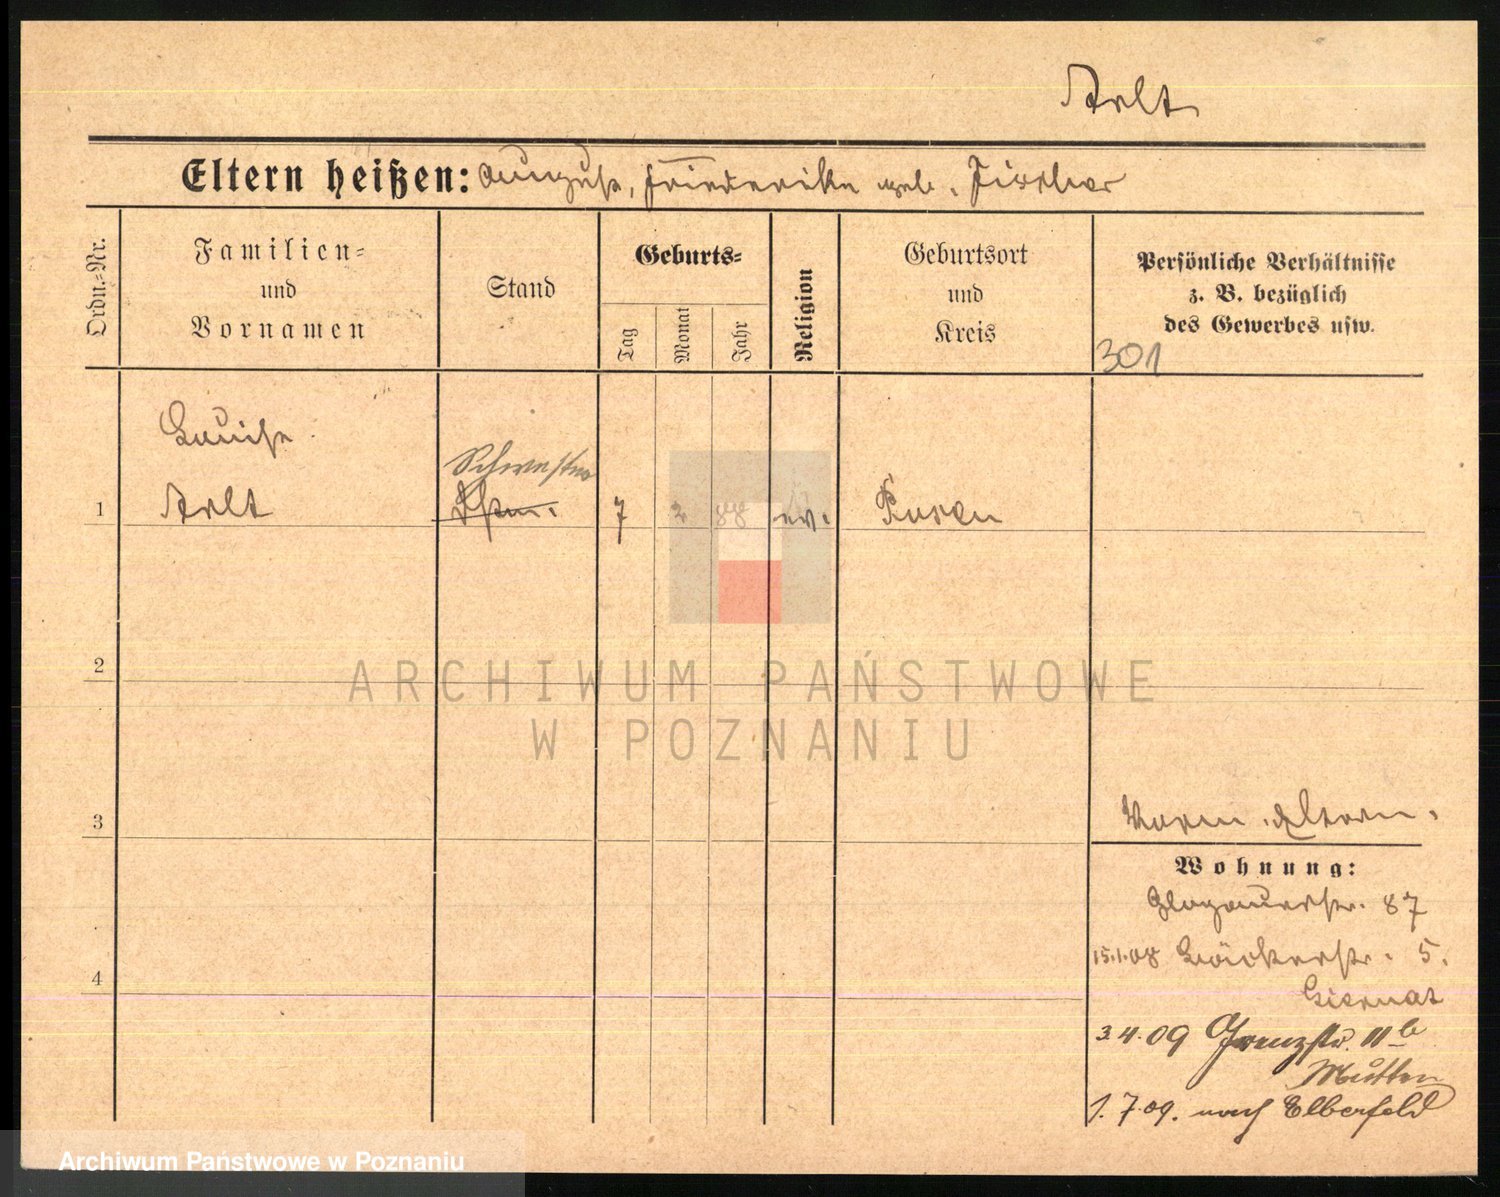 Arlt
Eltern heißen: August, Friederike geb. Fischer
Ordn.=Nr.
Familien=
und
Vornamen
Stand
Geburts=
Tag
Monat
Jahr
Religion
Geburtsort
und
Kreis
Persönliche Verhältnisse
z. B. bezüglich
des Gewerbes usw.
301
Louise
Schwester
1 Arlt 7 2 88 ev. Posen
2
ARCHIWUM PAŃSTWOWE
W POZNANIU
3
Eltern.
Wohnung:
Glogauerstr. 87
4
15.1.08 5.
3.4.09 Grenzstr. 11b
Mutter
1.7.09. nach Elberfeld
Archiwum Państwowe w Poznaniu